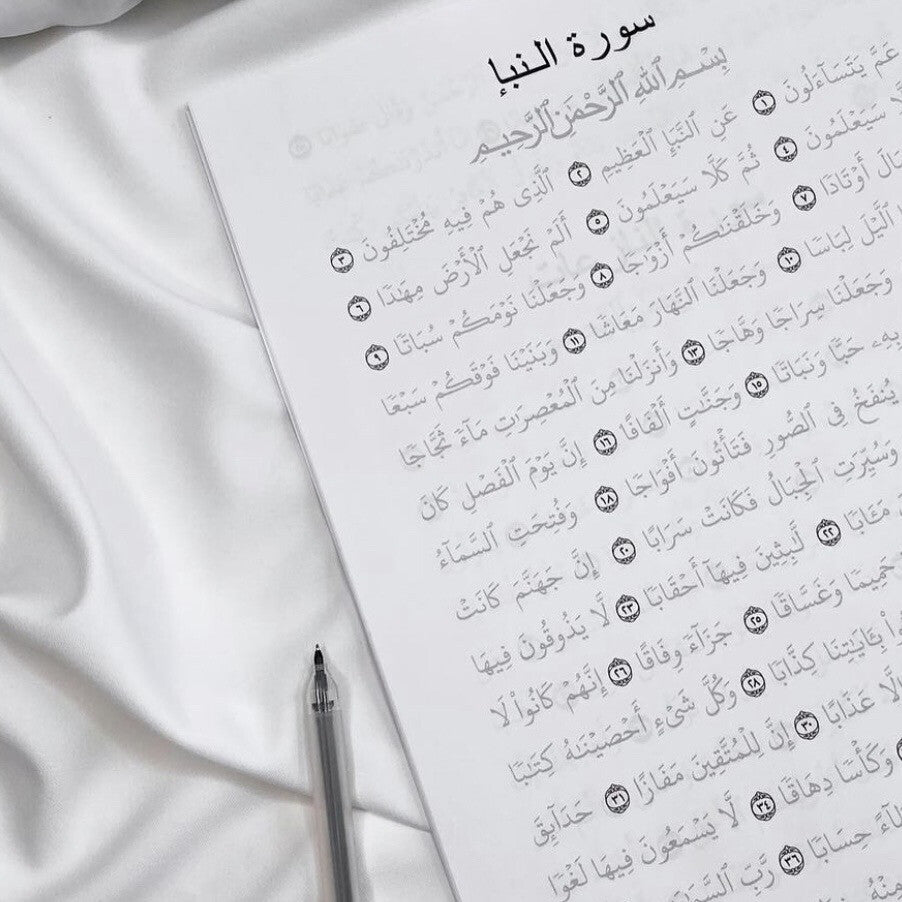 سورة النبإ
بِسْمِ ٱللَّهِ ٱلرَّحْمَٰنِ ٱلرَّحِيمِ
عَمَّ يَتَسَآءَلُونَ ١ عَنِ ٱلنَّبَإِ ٱلْعَظِيمِ ٢ ٱلَّذِى هُمْ فِيهِ مُخْتَلِفُونَ ٣
سَيَعْلَمُونَ ٤ ثُمَّ كَلَّا سَيَعْلَمُونَ ٥ أَلَمْ نَجْعَلِ ٱلْأَرْضَ مِهَٰدًا ٦
أَوْتَادًا ٧ وَخَلَقْنَٰكُمْ أَزْوَٰجًا ٨ وَجَعَلْنَا نَوْمَكُمْ سُبَاتًا ٩
ٱلَّيْلَ لِبَاسًا ١٠ وَجَعَلْنَا ٱلنَّهَارَ مَعَاشًا ١١ وَبَنَيْنَا فَوْقَكُمْ سَبْعًا
وَجَعَلْنَا سِرَاجًا وَهَّاجًا ١٣ وَأَنزَلْنَا مِنَ ٱلْمُعْصِرَٰتِ مَآءً ثَجَّاجًا
بِهِۦ حَبًّا وَنَبَاتًا ١٥ وَجَنَّٰتٍ أَلْفَافًا ١٦ إِنَّ يَوْمَ ٱلْفَصْلِ كَانَ
يُنفَخُ فِى ٱلصُّورِ فَتَأْتُونَ أَفْوَاجًا ١٨ وَفُتِحَتِ ٱلسَّمَآءُ
وَسُيِّرَتِ ٱلْجِبَالُ فَكَانَتْ سَرَابًا ٢٠ إِنَّ جَهَنَّمَ كَانَتْ
مَـَٔابًا ٢٢ لَّٰبِثِينَ فِيهَآ أَحْقَابًا ٢٣ لَّا يَذُوقُونَ فِيهَا
حَمِيمًا وَغَسَّاقًا ٢٥ جَزَآءً وِفَاقًا ٢٦ إِنَّهُمْ كَانُوا۟ لَا
بِـَٔايَٰتِنَا كِذَّابًا ٢٨ وَكُلَّ شَىْءٍ أَحْصَيْنَٰهُ كِتَٰبًا
إِلَّا عَذَابًا ٣٠ إِنَّ لِلْمُتَّقِينَ مَفَازًا ٣١ حَدَآئِقَ
وَكَأْسًا دِهَاقًا ٣٤ لَّا يَسْمَعُونَ فِيهَا لَغْوًا
حِسَابًا ٣٦ رَّبِّ
مِنْهُ